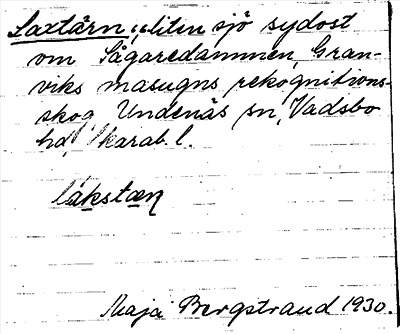 Laxtärn, liten sjö sydost
om Sågaredammen, Gran-
viks masugns rekognitions-
skog, Undenäs sn, Vadsbo
hd, Skarab. l.
låkstæn
Maja Bergstrand 1930.